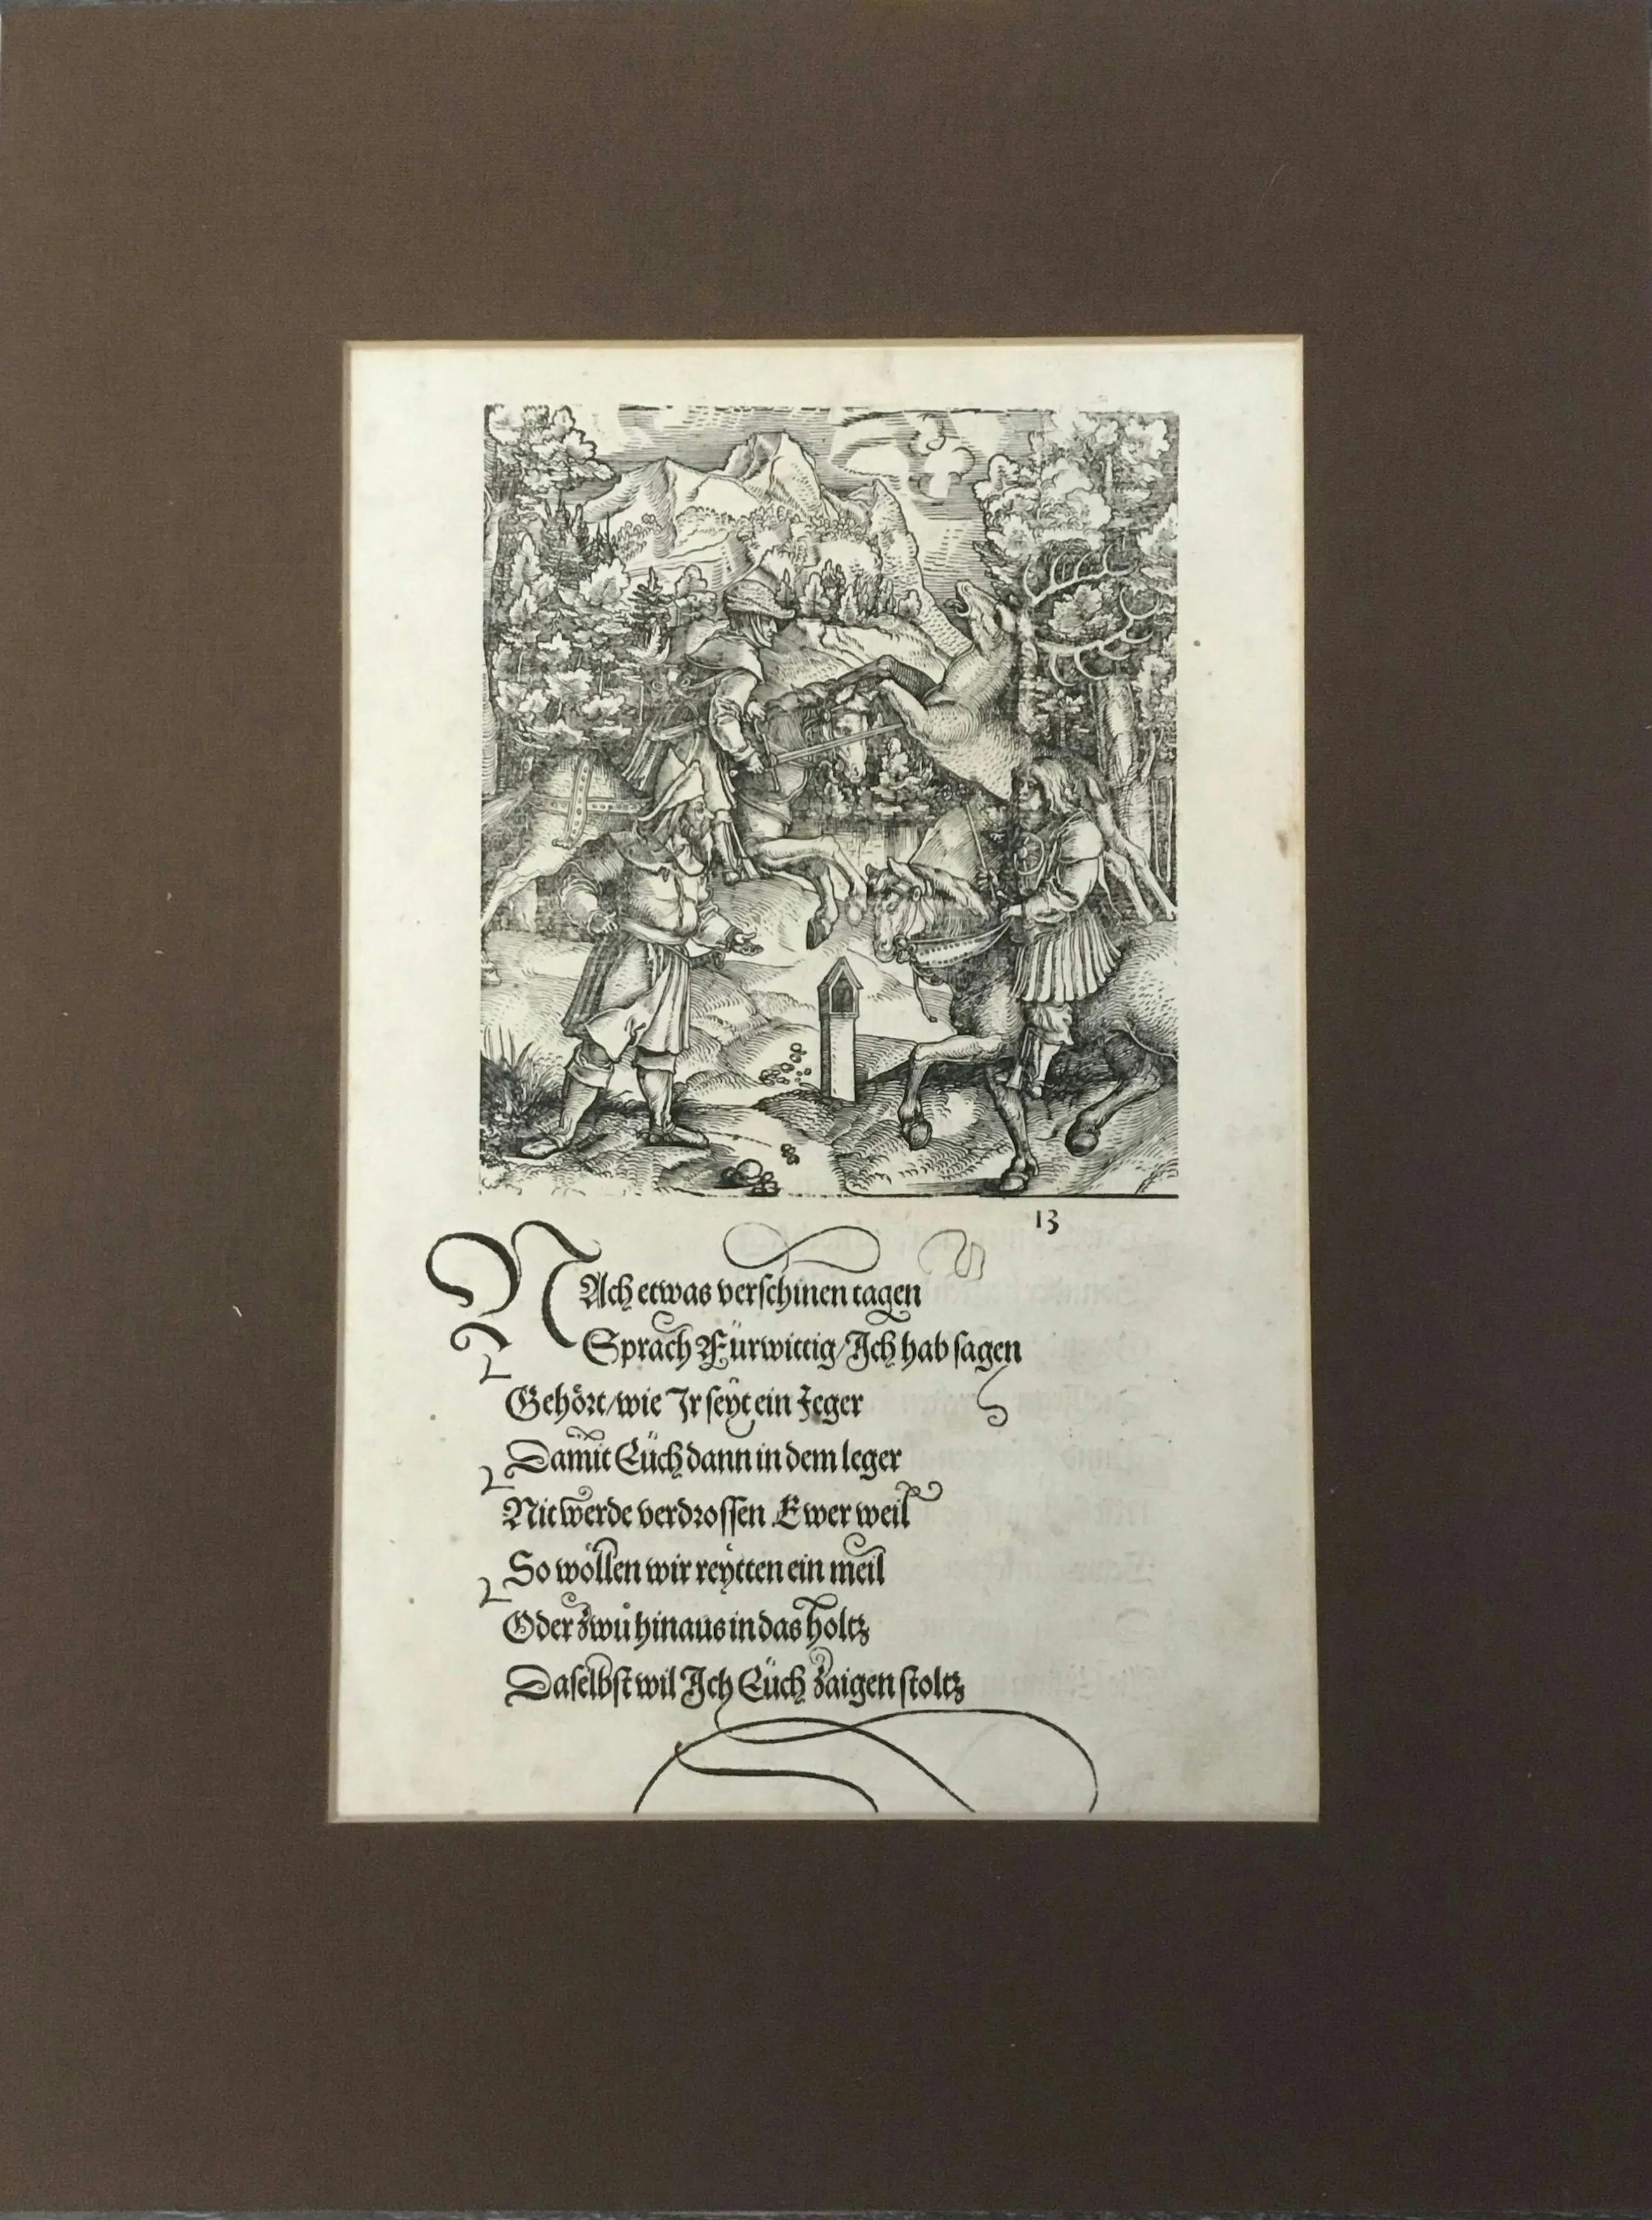 13
NAch etwas verschinen tagen
Sprach Fürwittig/Ich hab sagen
Gehört/wie Ir seyt ein Jeger
Damit Eüch dann in dem leger
Nit werde verdrossen Ewer weil
So wöllen wir reytten ein meil
Oder zwů hinaus in das holtz
Daselbst wil Ich Eüch zaigen stoltz